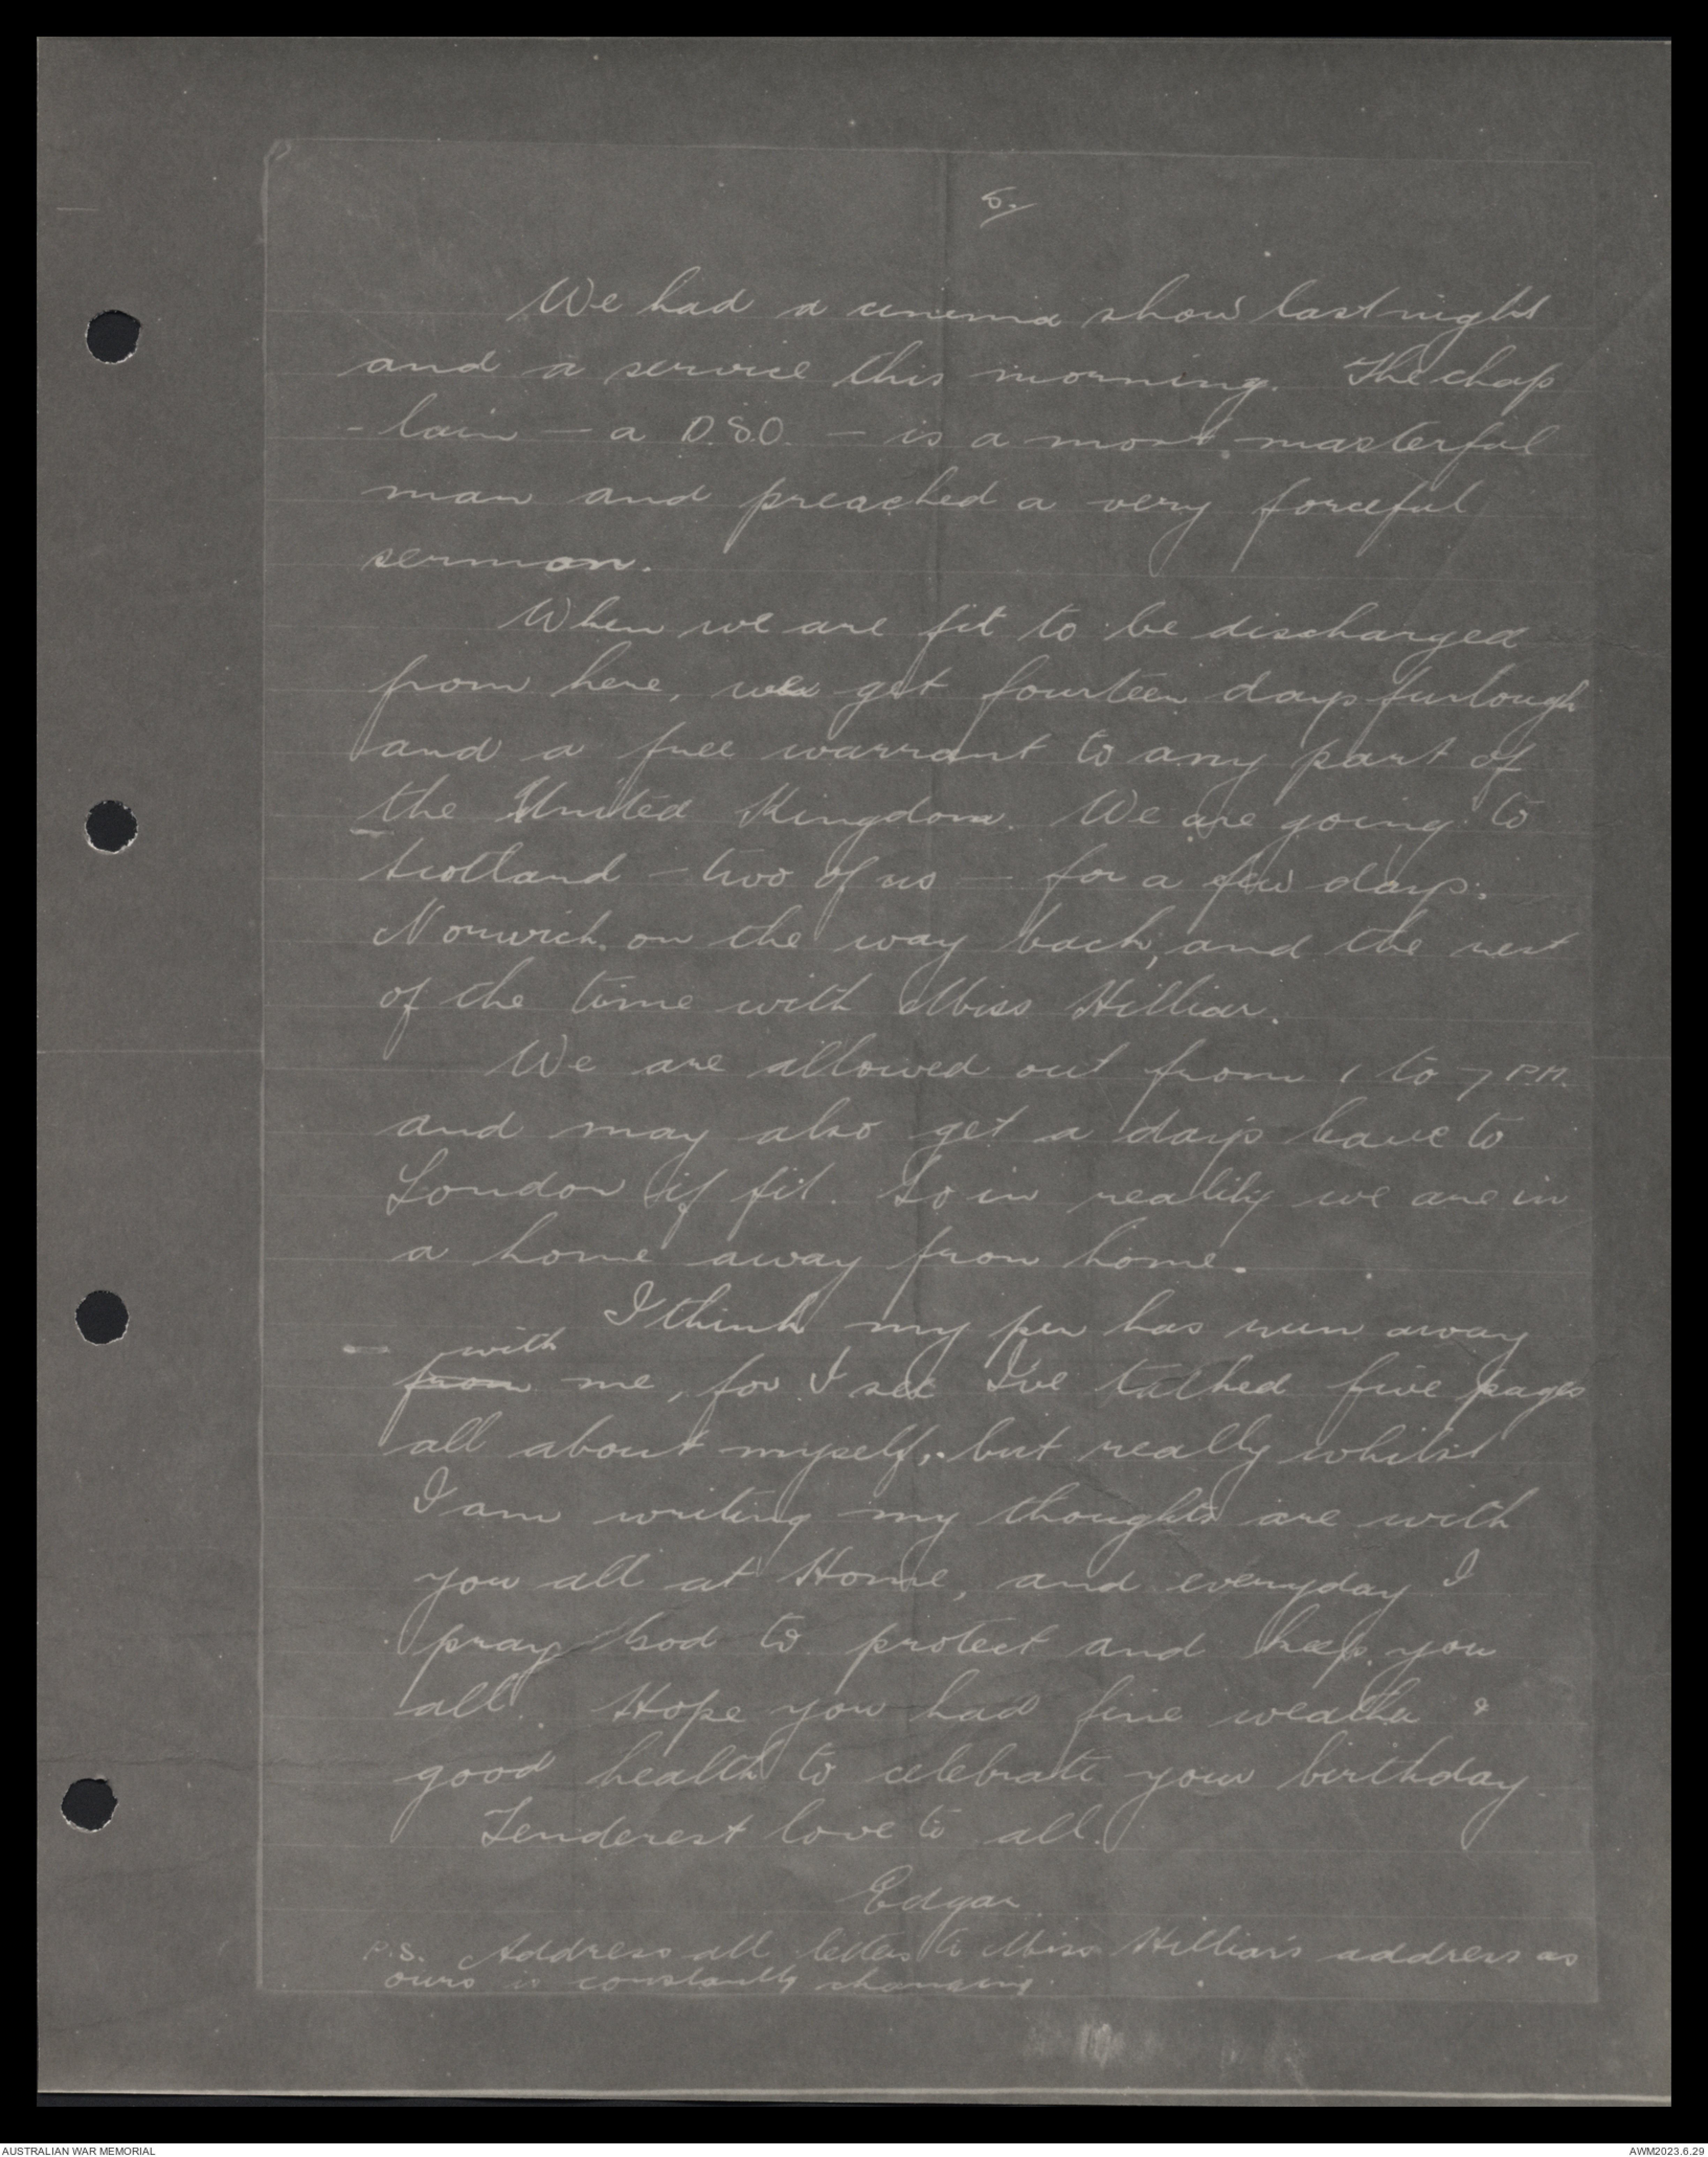 5.
We had a cinema show last night
and a service this morning. The chap
- lain - a D.S.O. - is a most masterful
man and preached a very forceful
sermon.
When we are fit to be discharged
from here, we get fourteen days furlough
and a free warrant to any part of
the United Kingdom. We are going to
Scotland - two of us - for a few days;
Norwich on the way back, and the rest
of the time with Miss Hilliar.
We are allowed out from 1 to 7 P.M.
and may also get a days leave to
London if fit. So in reality we are in
a home away from home.
I think my pen has run away
with
from me, for I see I've talked five pages
all about myself, but really whilst
I am writing my thoughts are with
you all at Home, and everyday I
pray God to protect and keep you
all. Hope you had fine weather &
good health to celebrate your birthday
Tenderest love to all.
Edgar.
P.S. Address all letters to Miss Hilliar's address as
ours is constantly changing.
AUSTRALIAN WAR MEMORIAL
AWM2023.6.29